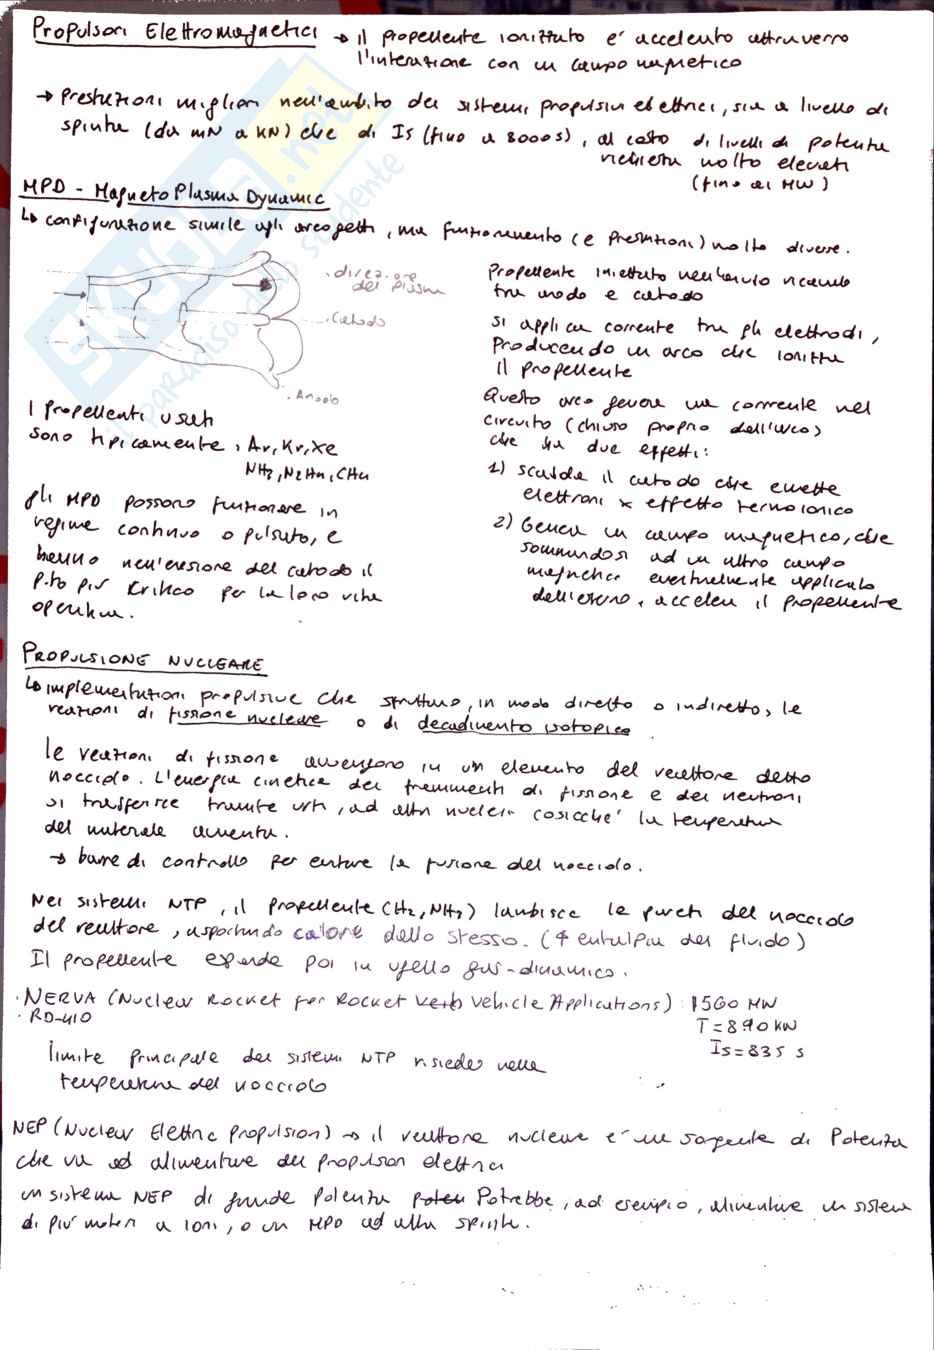 Propulsori Elettromagnetici → il propellente ionizzato e' accelerato attraverso
l'interazione con un campo magnetico
→ Prestazioni migliori nell'ambito dei sistemi propulsivi elettrici, sia a livello di
spinta (da mN a kN) che di Is (fino a 8000s), al costo di livelli di potenza
richiesta molto elevati
(fino ai MW)
MPD - MagnetoPlasmaDynamic
↳ configurazione simile agli arcogetti, ma funzionamento (e prestazioni) molto diverse.
. direzione
del plasma
. Catodo
. Anodo
Propellente iniettato nell'
tra anodo e catodo
si applica corrente tra gli elettrodi,
Producendo un arco che ionizza
il propellente
Questo arco genera una corrente nel
circuito (chiuso proprio dall'arco)
che ha due effetti:
1) scalda il catodo che emette
elettroni x effetto termoionico
2) Genera un campo magnetico, che
sommandosi ad un altro campo
magnetico eventualmente applicato
dall'esterno, accelera il propellente
I propellenti usati
sono tipicamente, Ar, Kr, Xe
NH3, N2H4, CH4
gli MPD possono funzionare in
regime continuo o pulsato, e
hanno nell'erosione del catodo il
P.to più critico per la loro vita
operativa.
PROPULSIONE NUCLEARE
↳ implementazioni propulsive che sfruttano, in modo diretto o indiretto, le
reazioni di fissione nucleare o di decadimento isotopico
le reazioni di fissione avvengono in un elemento del reattore detto
nocciolo. L'energia cinetica dei frammenti di fissione e dei neutroni
si trasferisce tramite urti, ad altri nuclei cosicche' la temperatura
del materiale aumenta.
→ barre di controllo per evitare la fusione del nocciolo.
Nei sistemi NTP, il propellente (H2, NH3) lambisce le pareti del nocciolo
del reattore, asportando calore dallo stesso. (↑ entalpia del fluido)
Il propellente espande poi in ugello gas-dinamico.
. NERVA (Nuclear Rocket for Rocket Vehicle Applications) : 1560 MW
. RD-410
T = 890 kN
Is = 835 s
limite principale dei sistemi NTP risiede nella
temperatura del nocciolo
NEP (Nuclear Elettric Propulsion) → il reattore nucleare e' una sorgente di Potenza
che va ad alimentare dei propulsori elettrici
un sistema NEP di grande potenza Potrebbe, ad esempio, alimentare un sistema
di piu' motori a ioni, o un MPD ad alta spinta.
SKUOLA.net
il paradiso dello studente